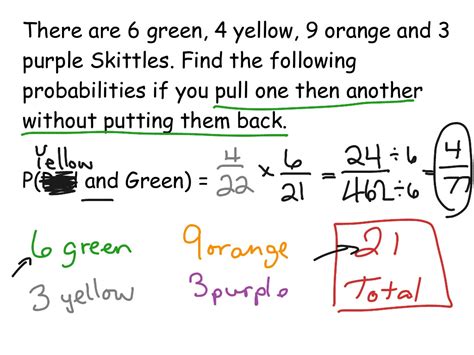 There are 6 green, 4 yellow, 9 orange and 3
purple Skittles. Find the following
probabilities if you pull one then another
without putting them back.
Yellow
P( and Green) = 4/22 × 6/21 = 24÷6/462÷6 = 4/77
6 green 9 orange 21
3 yellow 3 purple Total